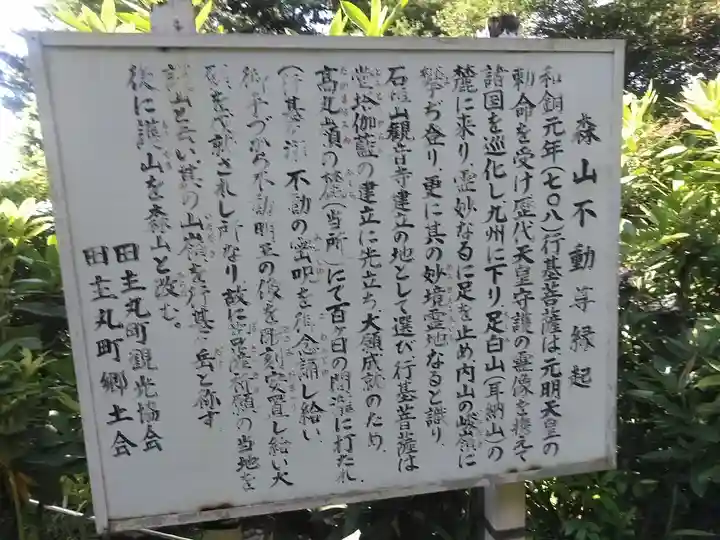 森山不動尊縁起
和銅元年(七〇八)行基菩薩は元明天皇の
勅命を受け歴代天皇守護の霊像を携えて
諸国を巡化し九州に下り足白山(耳納山)の
麓に来り霊妙なるに足を止め内山の嶮嶺に
攀ぢ登り、更に其の妙境霊地なると識り、
石垣山観音寺建立の地として選び行基菩薩は
堂塔伽藍の建立に先立ち、大願成就のため、
高丸嶺の麓(当所)にて百ヶ日の間瀧に打たれ、
(行基の瀧)不動の密呪を御念誦し給い
御手づから不動明王の像を彫刻安置し給い大
願を成就されし所なり故に祈願の当地を
山と云い其の山嶺を行基岳と称す
後に護山を森山と改む。
田主丸町観光協会
田主丸町郷土会